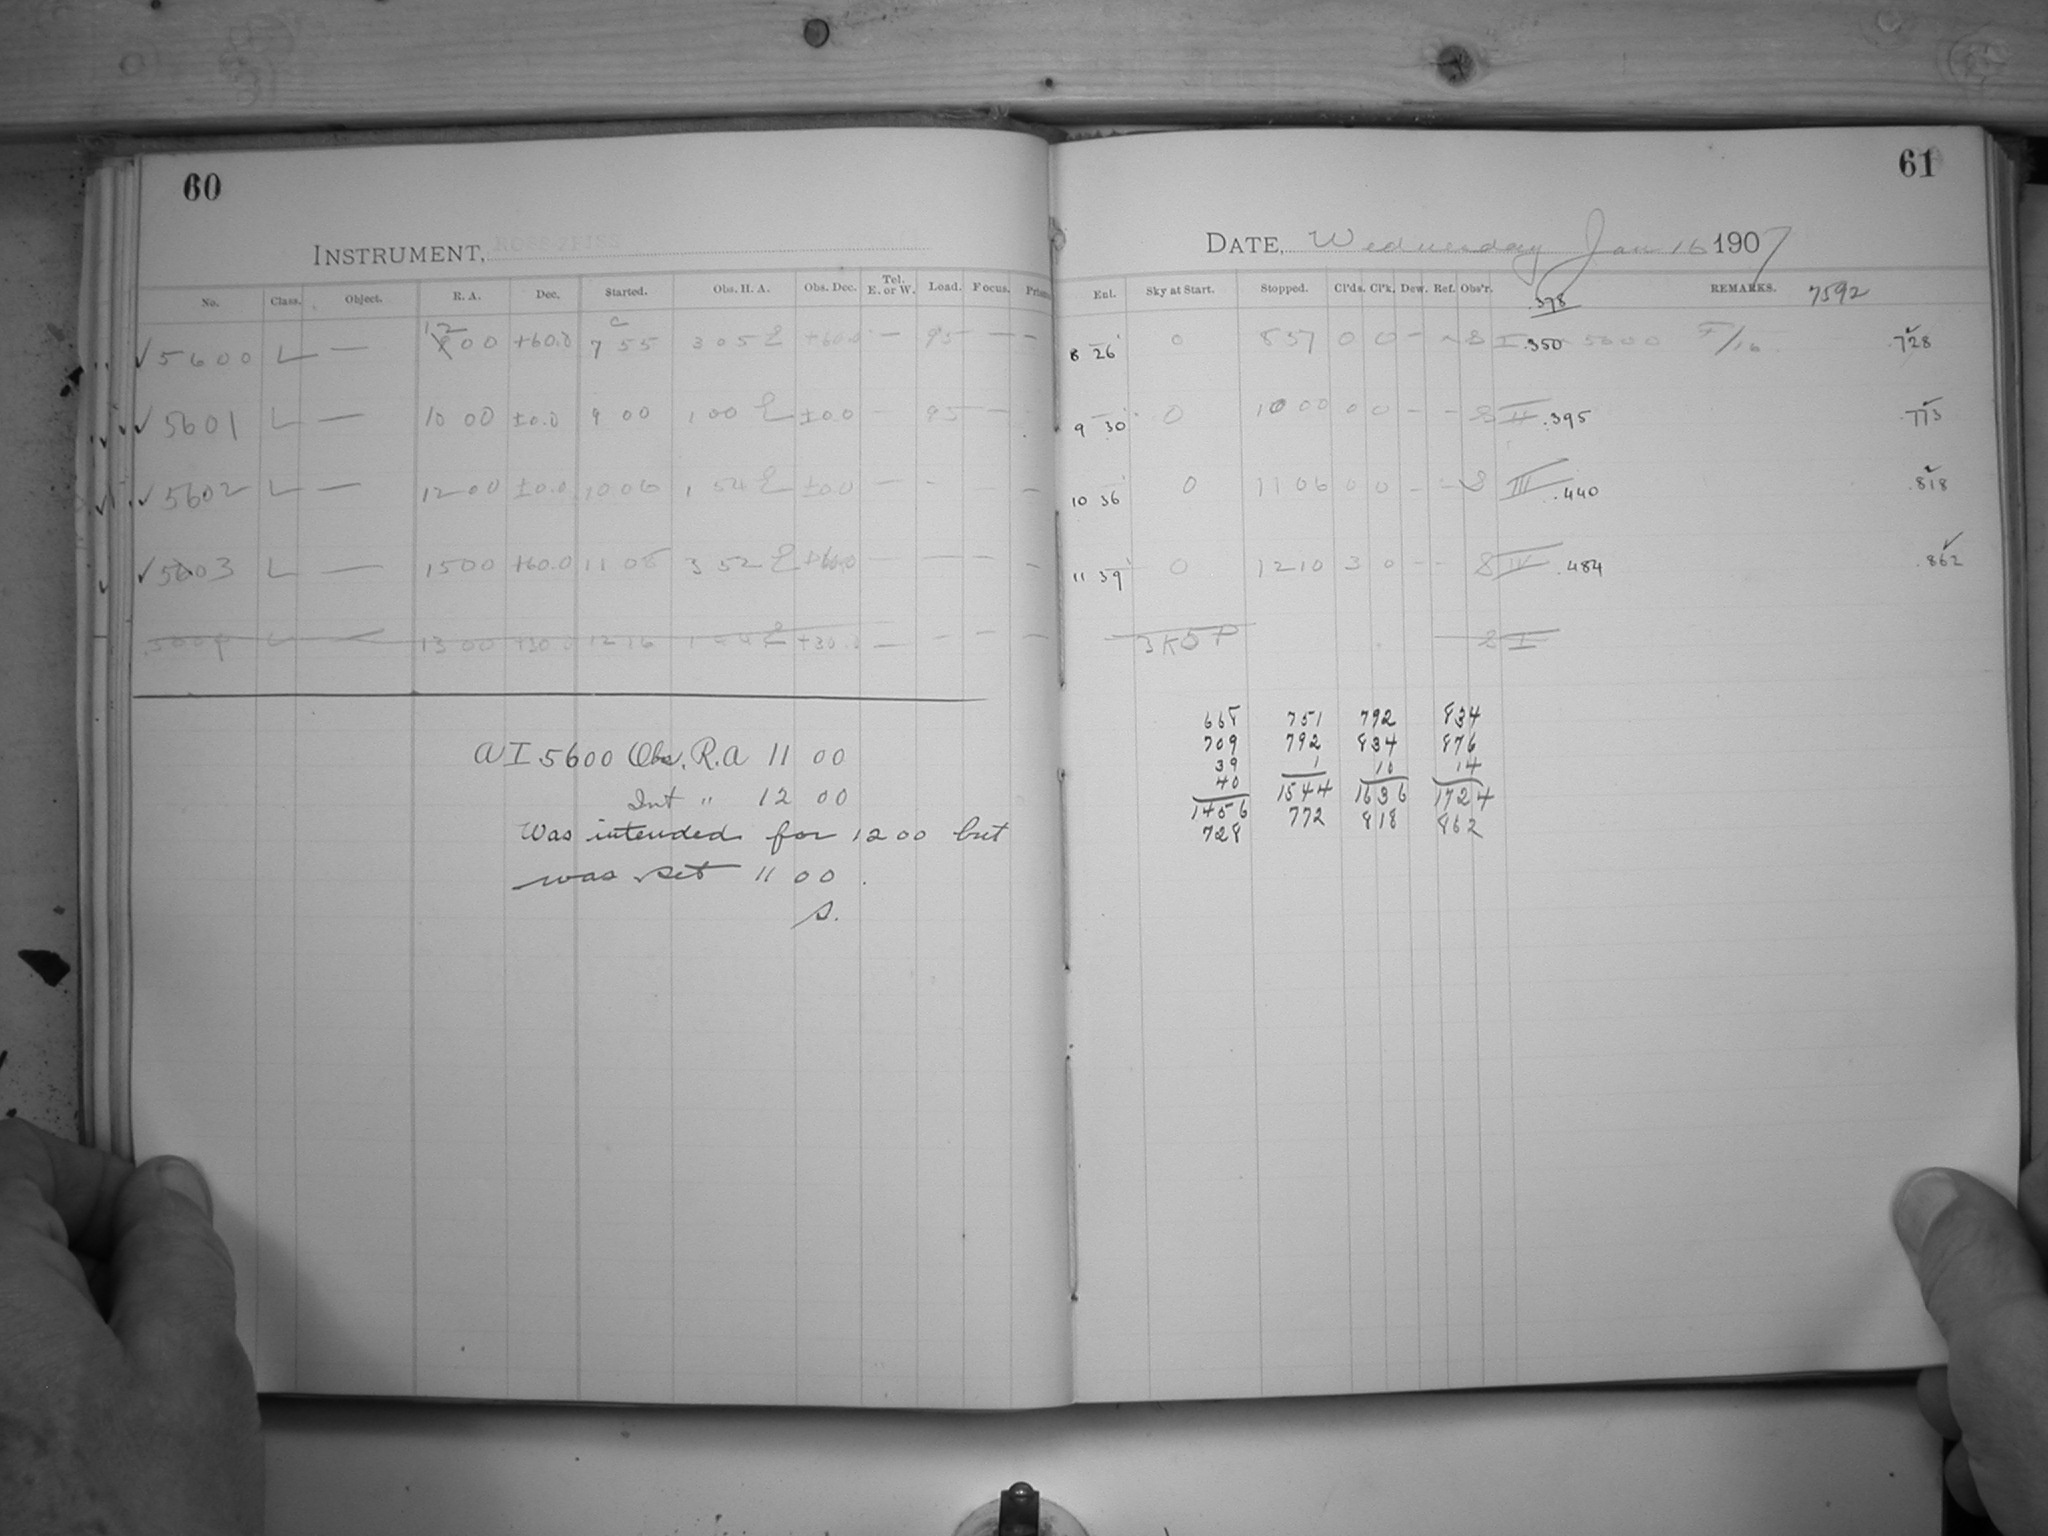 60
61
INSTRUMENT, ROSS ZEISS
DATE, Wednesday Jan 16 1907
No. Class. Object. R. A. Dec. Started. Obs. H. A. Obs. Dec. Tel. E. or W. Load. Focus. Prism
Ent. Sky at Start. Stopped. Cl'ds. Cl'k. Dew. Ref. Obs'r. REMARKS. 7592
.378
✓ 5600 L — 12 00 +60.0 7 55 3 05 E +60.0 — 95 — — 8 26 0 8 57 0 0 — S I .350 5600 F/16 .728
✓ 5601 L — 10 00 ±0.0 9 00 1 00 E ±0.0 — 95 — 9 30 0 10 00 0 0 — — S II .395 .773
✓ 5602 L — 12 00 ±0.0 10 06 1 54 E ±0.0 — - — 10 36 0 11 06 0 0 — — S III .440 .818
✓ 5603 L — 15 00 +60.0 11 08 3 52 E +60.0 — — — — 11 39 0 12 10 3 0 — — S IV .484 .862
5604 L — 13 00 +30.0 12 16 E +30.0 — — — — I
AI 5600 Obs. R.A 11 00
Int " 12 00
Was intended for 12 00 but
was set 11 00.
S.
668 751 792 834
709 792 834 876
39 1 10 14
40 1544 1636 1724
1456 772 818 862
728